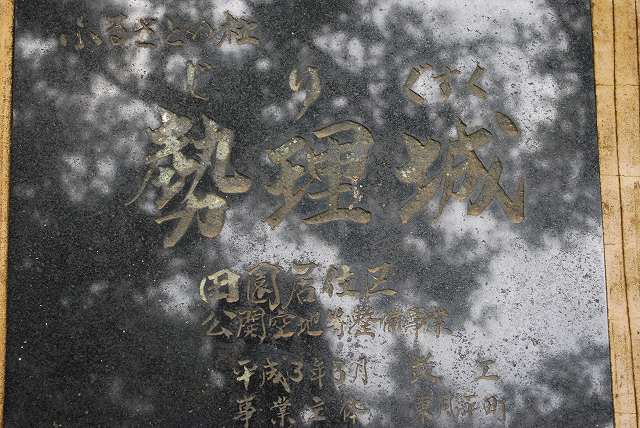 ふるさとの杜
じりぐすく
勢理城
田園居住区
公開空地等整備事業
平成3年3月 竣工
事業主体 東風平町